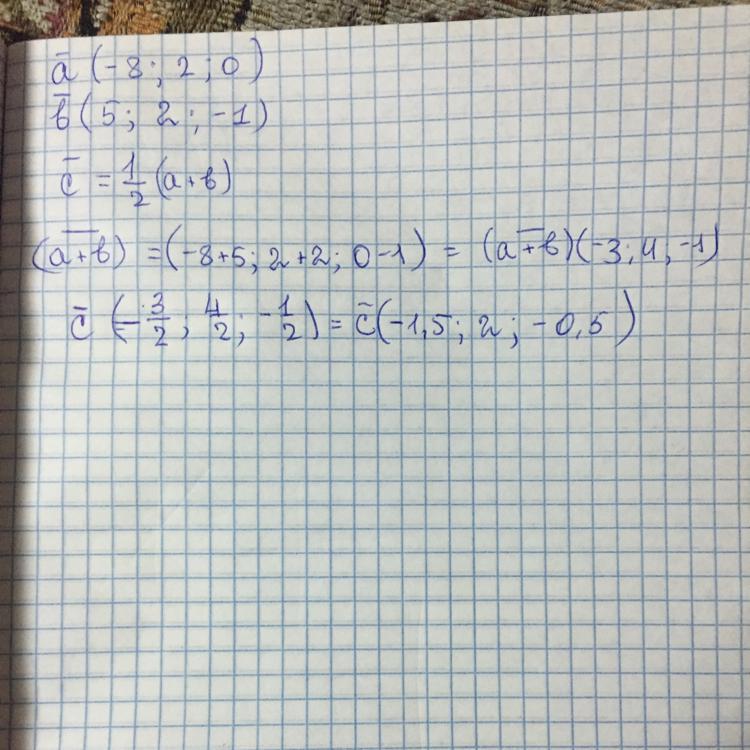 a̅ (-8; 2; 0)
b̅ (5; 2; -1)
c̅ = 1/2 (a+b)
(a̅+̅b̅) = (-8+5; 2+2; 0-1) = (a̅+̅b̅)(-3; 4; -1)
c̅ (-3/2; 4/2; -1/2) = c̅(-1,5; 2; -0,5)